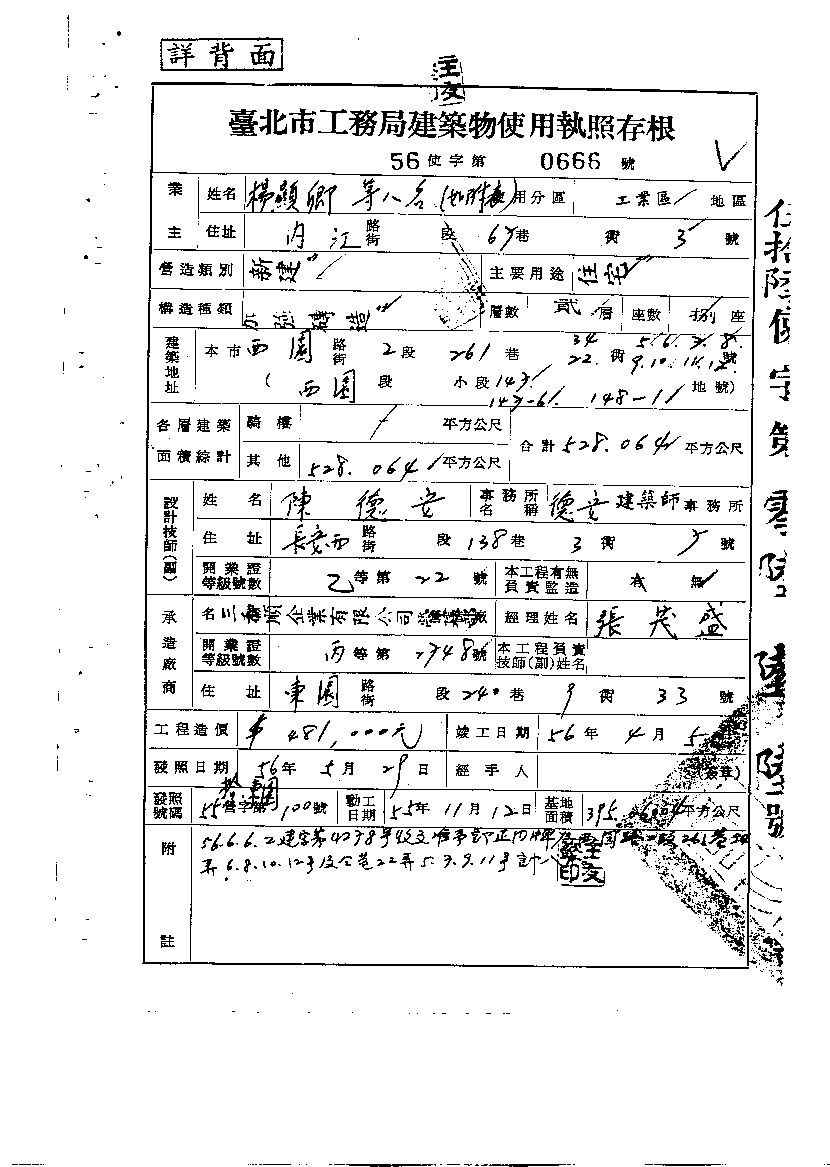 詳背面
臺北市工務局建築物使用執照存根
56使字第 0666 號
業主 姓名 楊顯卿 等八名 用分區 工業區 地區
住址 內江 路街 段 65巷 衖 3 號
營造類別 新建 主要用途 住宅
構造種類 加強磚造 層數 貳層 座數 捌座
建築地址 本市 西園 路街 2段 261巷 34 22 衖 5.6.7.8. 9.10.11.12. 號
(西園 段 小段 地號) 148-11
各層建築面積綜計 騎樓 / 平方公尺 合計 528.064 平方公尺
其他 528.064 平方公尺
設計技師(副) 姓名 陳德安 事務所名稱 德安建築師事務所
住址 長安西 路街 段 138巷 3衖 號
開業證等級號數 乙等第 22 號 本工程有無負責監造 有 無
承造廠商 名 順企業有限公司 經理姓名 張茂盛
開業證等級號數 丙等第 號 本工程員責技師(副)姓名
住址 東園 路街 段 240巷 9衖 33 號
工程造價 481,000元 竣工日期 56年 4月 5
發照日期 56年 5月 29日 經手人 (簽章)
發照號碼 55營字第 100號 動工日期 55年 11月 12日 基地面積 395. 平方公尺
附註 56.6.6.2建字第4238號
弄6.8.10.12號及 22弄5.7.9.11號計
伍拾陸使字第零陸陸陸號